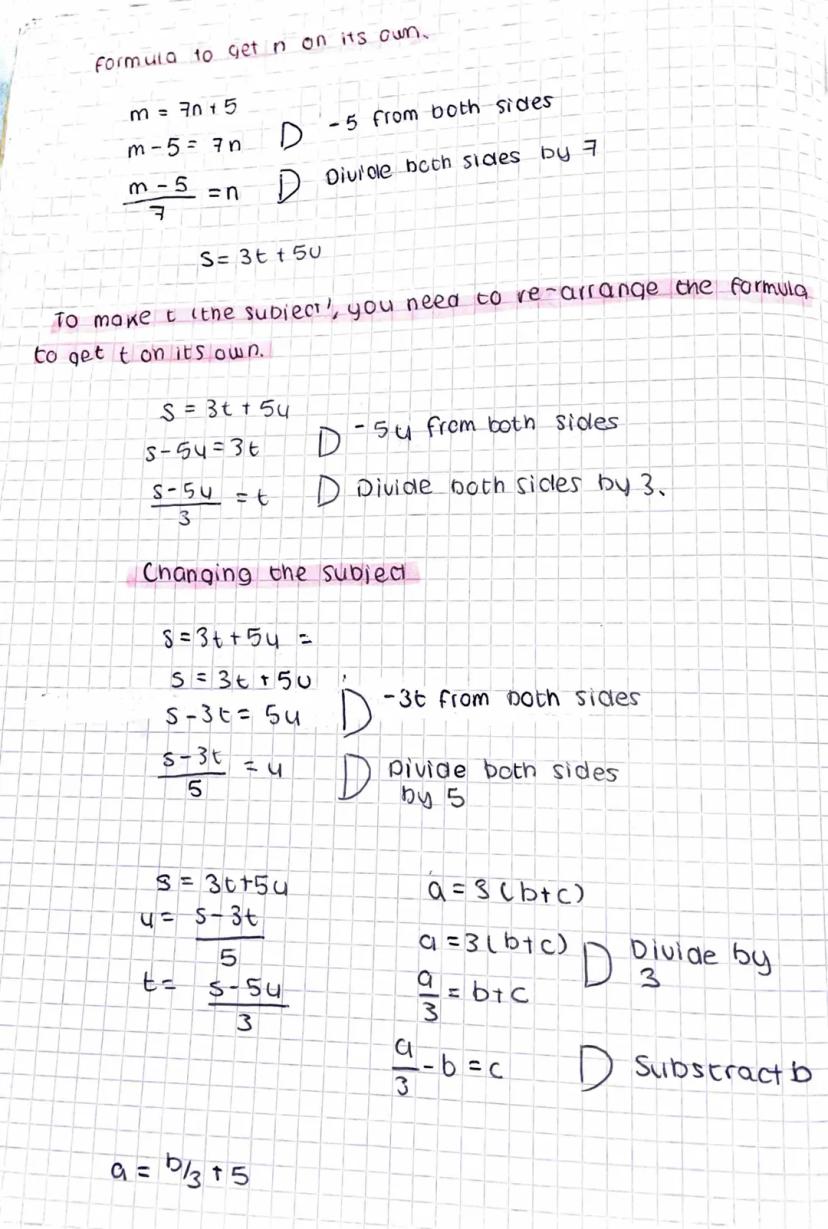 Formula to get n on its own.
m = 7n + 5
m - 5 = 7n D -5 from both sides
m - 5 / 7 = n D Divide both sides by 7
s = 3t + 5u
To make t 'the subject', you need to re-arrange the formula
to get t on its own.
s = 3t + 5u
s - 5u = 3t D -5u from both sides
s - 5u / 3 = t D Divide both sides by 3.
Changing the subject
s = 3t + 5u =
s = 3t + 5u
s - 3t = 5u D -3t from both sides
s - 3t / 5 = u D Divide both sides
by 5
s = 3t + 5u
u = s - 3t / 5
t = s - 5u / 3
a = 3(b+c)
a = 3(b+c) D Divide by
3
a / 3 = b+c
a / 3 - b = c D Substract b
a = b/3 + 5